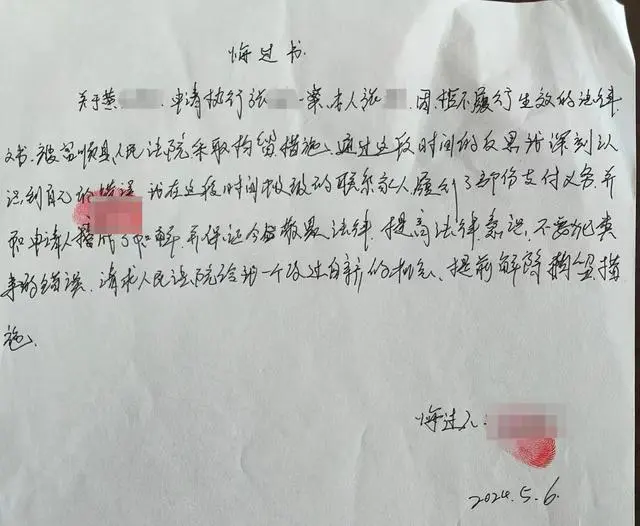 悔过书
关于黄 申请执行张 一案,本人张 因拒不履行生效的法律
文书,被富顺县人民法院采取拘留措施。通过这段时间的反思我深刻认
识到自己的错误 我在这段时间积极的联系家人,履行了部份支付义务,并
和申请人 达成了和解 并保证今后敬畏法律,提高法律意识,不要犯类
事的错误,请求人民法院给我一个改过自新的机会、提前解除拘留措
施。
悔过人:
2024.5.6